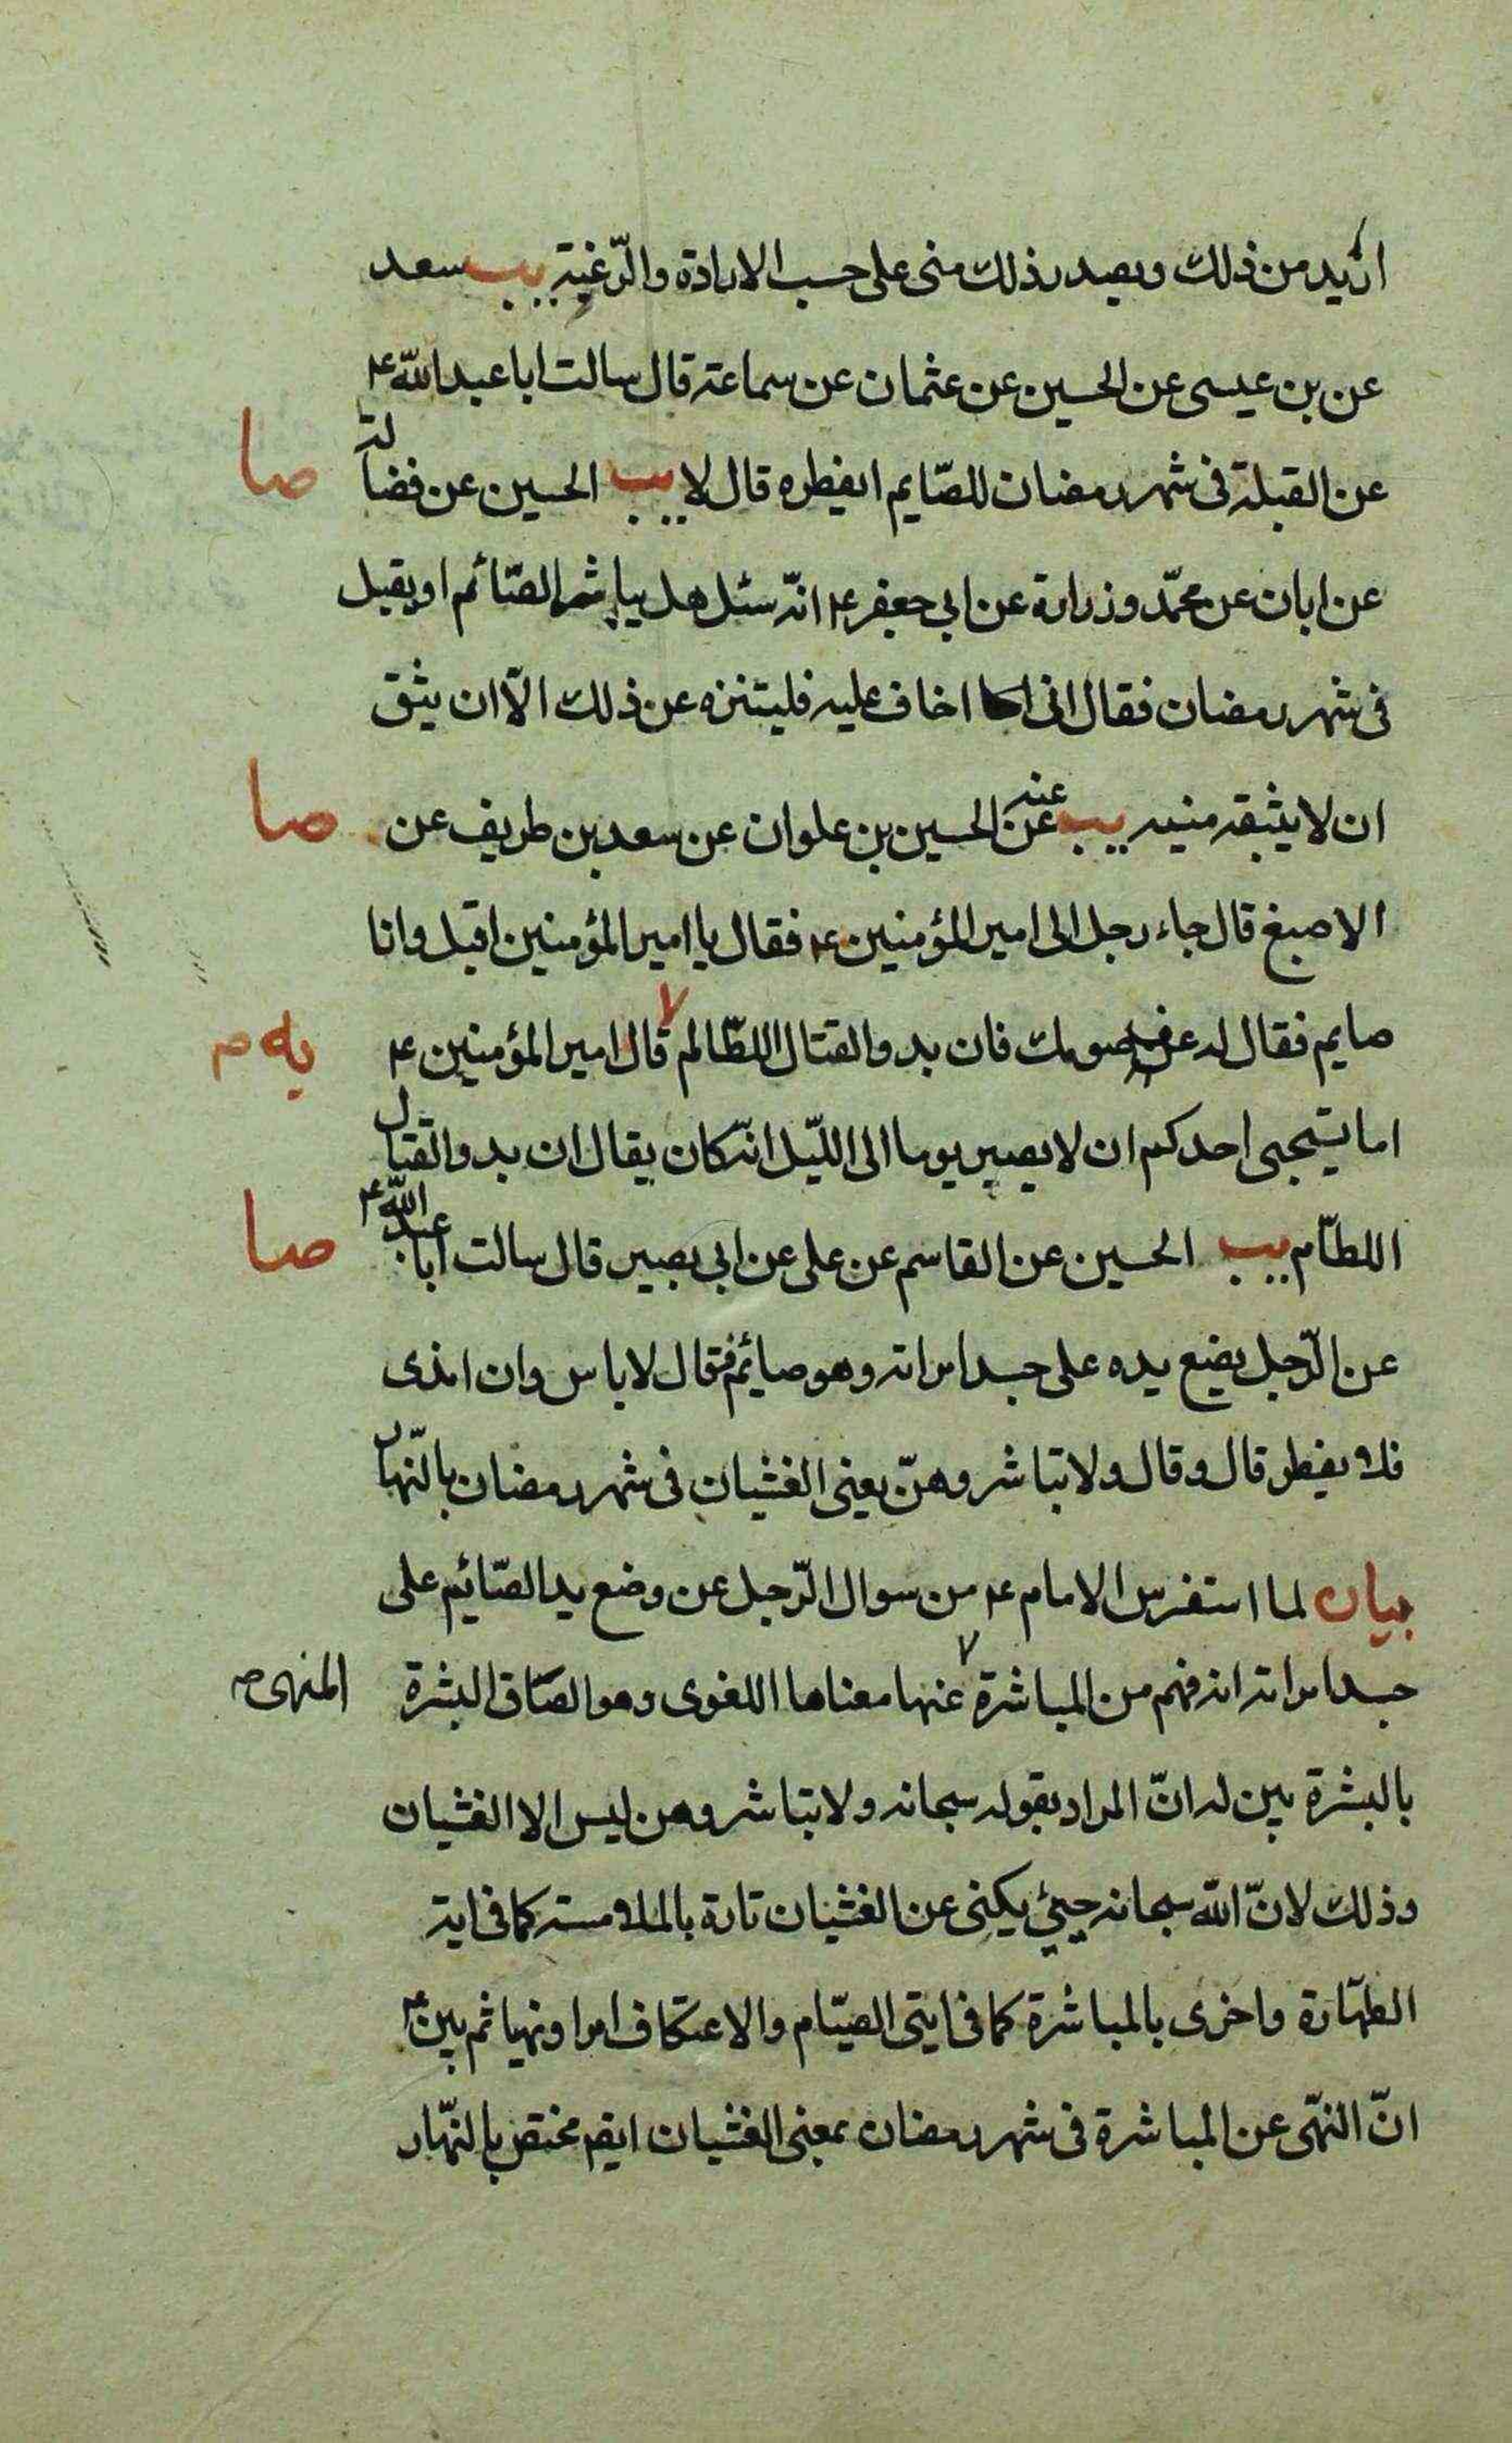 ازيد من ذلك ويصدر ذلك منى على حسب الارادة والرّغبة يب سعد
عن بن عيسى عن الحسين عن عثمان عن سماعة قال سالت ابا عبد الله ع
عن القبلة فى شهر رمضان للصّايم ايفطره قال لا يب الحسين عن فضالة
صا
عن ابان عن محمّد وزرارة عن ابى جعفر ع انّه سئل هل يباشر الصّائم او يقبل
فى شهر رمضان فقال انى اخاف عليه فليتنزه عن ذلك الّا ان يثق
ان لا يثبقه منيه يب عنه عن الحسين بن علوان عن سعد بن طريف عن
صا
الاصبغ قال جاء رجل الى امير المؤمنين ع فقال يا امير المؤمنين اقبل وانا
صايم فقال له عف صومك فان بدو القتال اللطّام قال امير المؤمنين ع
يه م
اما يستحيى احدكم ان لا يصبر يوما الى اللّيل انّه كان يقال ان بدو القتال
اللطّام يب الحسين عن القاسم عن على عن ابى بصير قال سالت ابا عبد الله ع
صا
عن الرّجل يضع يده على جسد امراته وهو صائم فقال لا باس وان امذى
فلا يفطر قال وقال ولا تباشروهنّ يعنى الغشيان فى شهر رمضان بالنّهار
بيان لما استفرس الامام ع من سوال الرّجل عن وضع يد الصّائم على
جسد امراته انه فهم من المباشرة عنها معناها اللغوى وهو الصاق البشرة
المنهى ص
بالبشرة بين له انّ المراد بقوله سبحانه ولا تباشروهن ليس الا الغشيان
وذلك لانّ الله سبحانه حيىّ يكنى عن الغشيان تارة بالملامسة كما فى اية
الطهّارة واخرى بالمباشرة كما فى ايتى الصيّام والاعتكاف امرا ونهيا ثم بين ع
انّ النهّى عن المباشرة فى شهر رمضان بمعنى الغشيان ايضم مختص بالنّهار